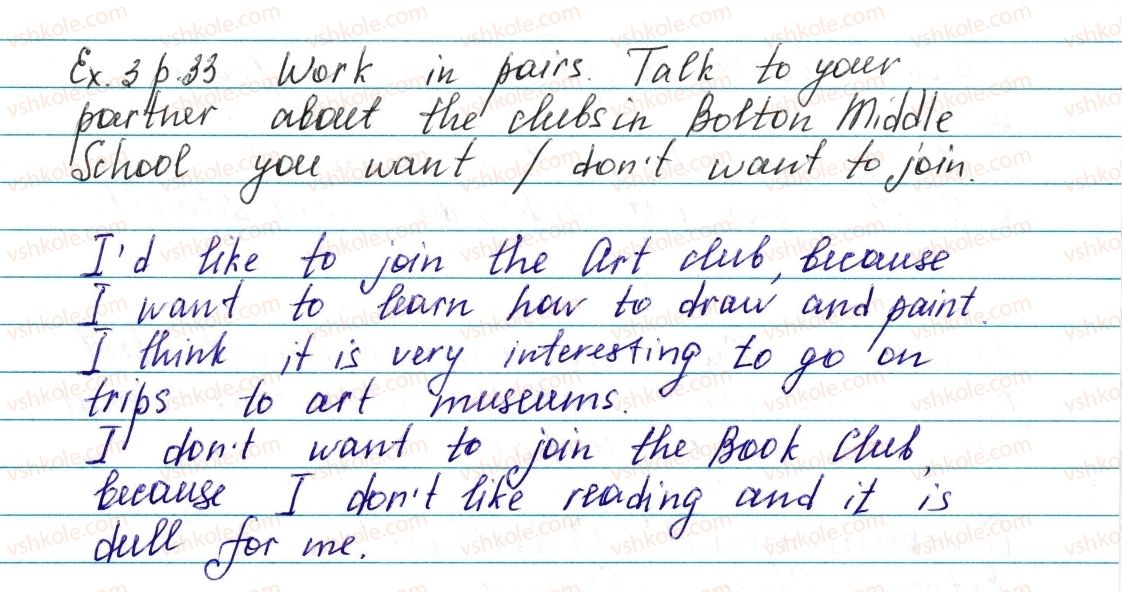 Ex. 3 p. 33 Work in pairs. Talk to your
partner about the clubs in Bolton Middle
School you want / don't want to join.
I'd like to join the Art club, because
I want to learn how to draw and paint.
I think it is very interesting to go on
trips to art museums.
I don't want to join the Book Club,
because I don't like reading and it is
dull for me.